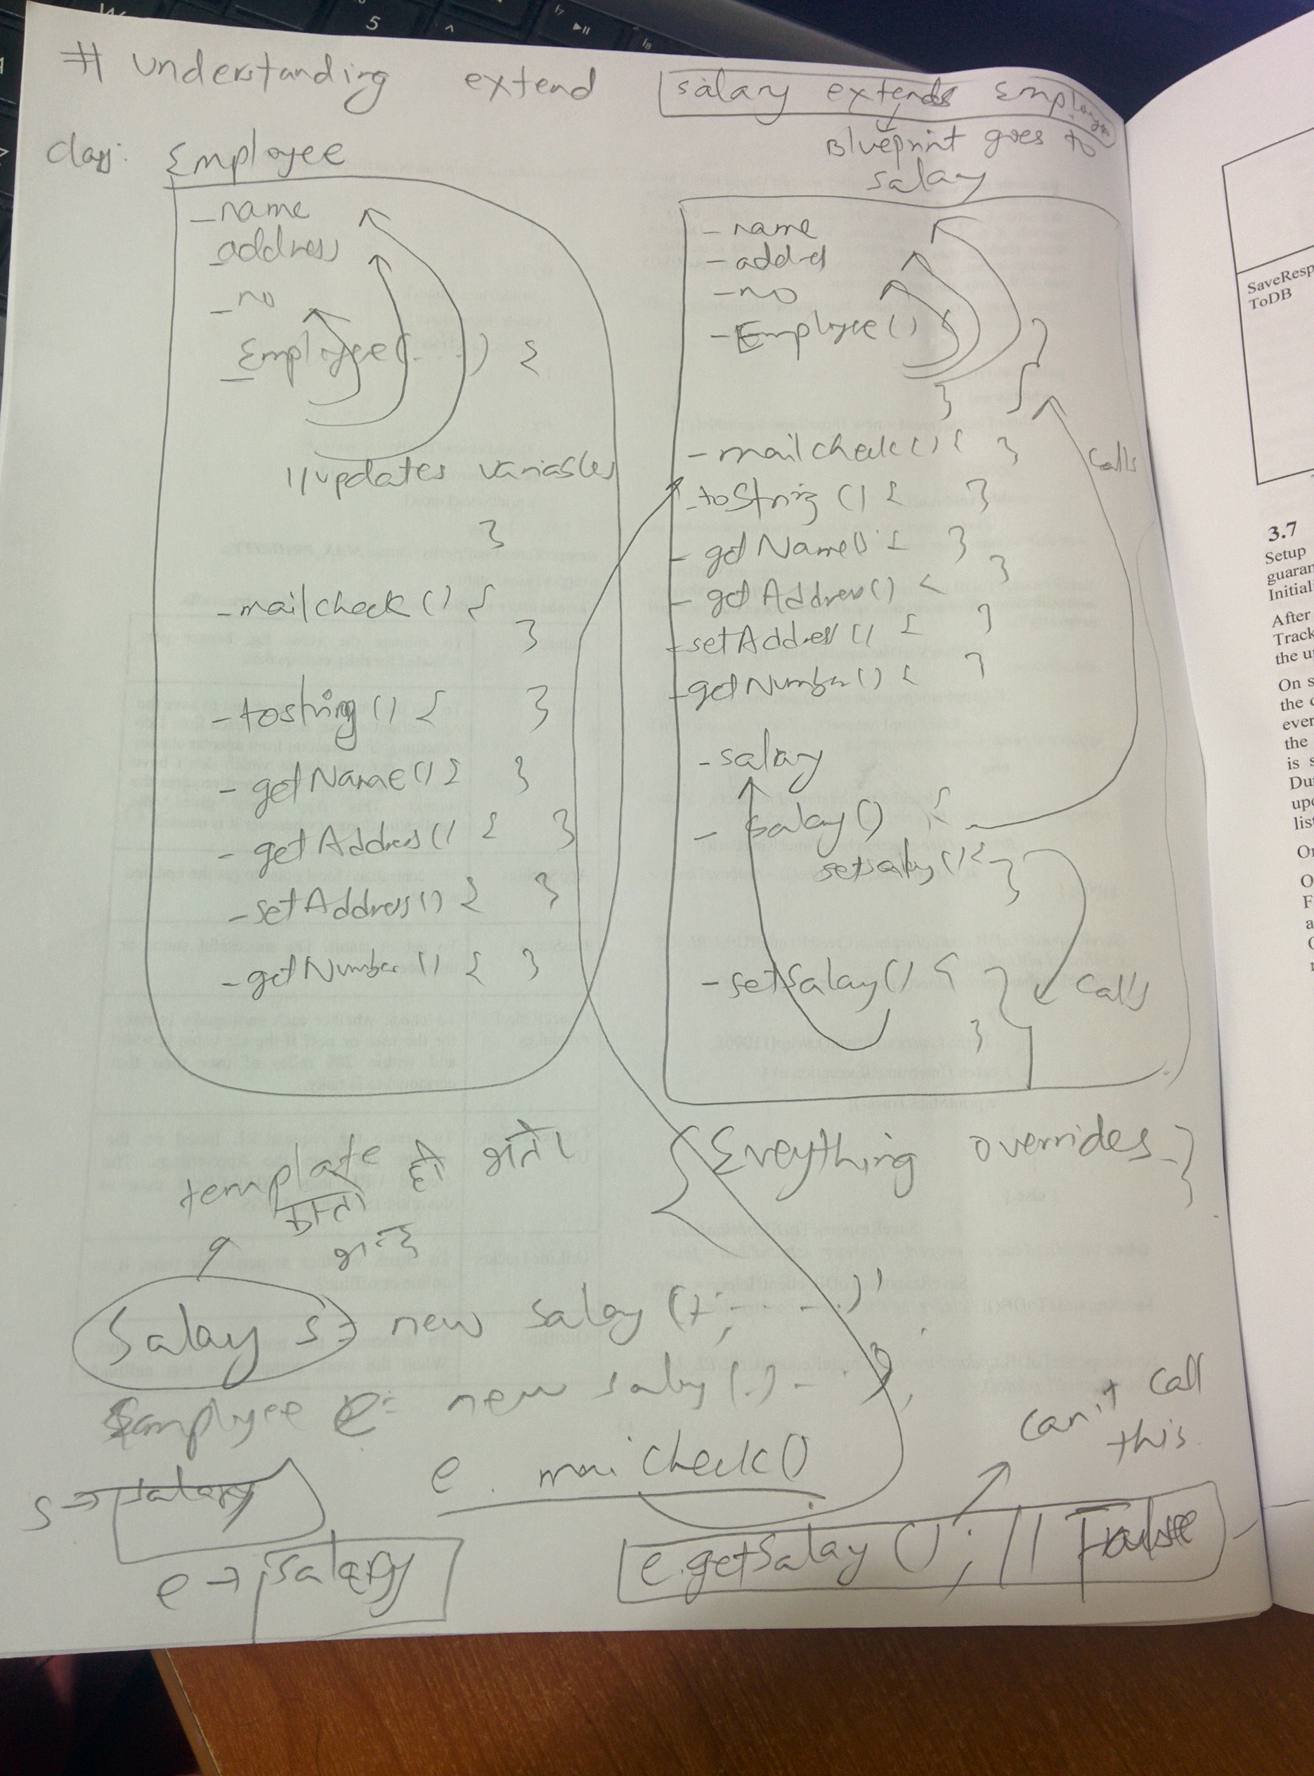 # understanding extend
salary extends Employee
Blueprint goes to
salary
class: Employee
- name
- address
- no
- Employee(....) {
//updates variables
}
- mailcheck() {
}
- tostring() { }
- getName() { }
- getAddress() { }
- setAddress() { }
- getNumber() { }
- name
- addrel
- no
- Employee() { }
}
- mailcheck() { }
calls
- toString() { }
- getName() { }
- getAddress() { }
- setAddress() { }
- getNumber() { }
- salary
- salary() {
setsalary() {
}
- setSalary() {
calls
}
{Everything overrides.}
template
Salary s = new salary(
Employee e = new salary(
can't call
this
e. mailcheck()
s → salary
e → salary
e.getSalary(); // False
SaveResp
ToDB
3.7
Setup
guaran
Initial
After
Track
the u
On s
the c
even
the
is s
Du
upo
list
On
O
F
a